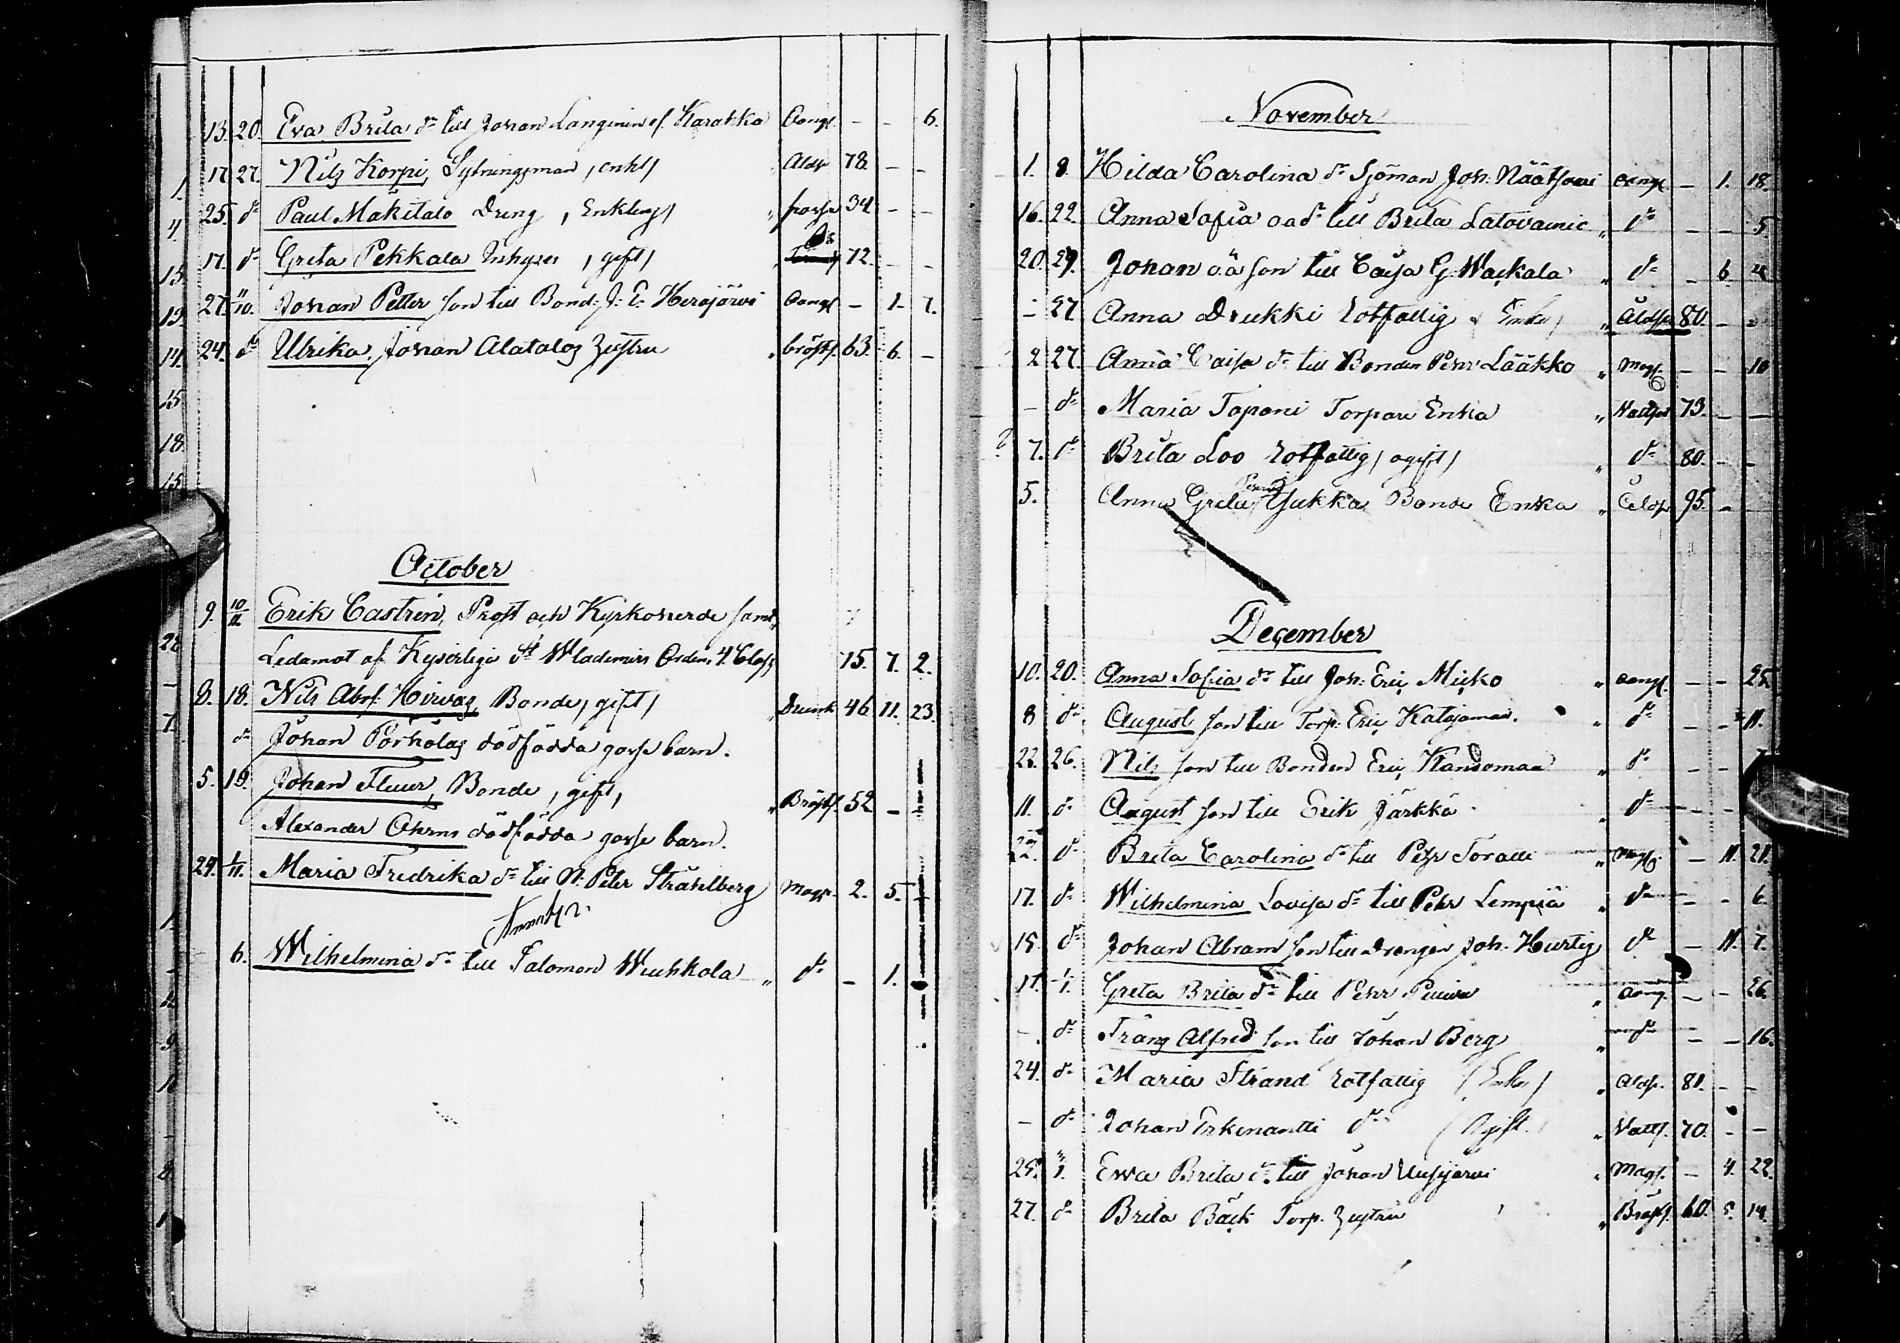 13. 20. Eva Brita dr till Johan Langinen Karahka Aongf. - - 6.
17 27. Nils Korpi, Sytningsman, enkl/ Aldr 78. - -
25. do Paul Mäkitalo Dreng, Enkling/ 34 - -
17. do Greta Pekkala Inhyses, gift/ 72. - -
27. 11/10. Johan Petter son till Bond. J. E. Herajärvi Aongf - 1. 7.
24. do Ulrika, Johan Alatalos hustru bröstf. 63. 6. -
October
9. 10/11 Erik Castrén, Prost och Kyrkoherde samt
Ledamot af Kejserliga St Wlademirs Orden, 4. Class 75. 7. 2.
8. 18. Nils Abrh. Hirvas, Bonde, gift/ Drunk 46 11. 23.
do Johan Pörhölas dödfödda gosse barn.
5. 19. Johan Fluur, Bonde, gift, Bröstf. 52 -
Alexander Ohrns dödfödda gosse barn.
24. 1/11. Maria Fredrika dr till N. Peter Stråhlberg Magf. 2. 5. -
6. Wilhelmina dr till Salomon Wuhkola do - 1.
November
1. 8. Hilda Carolina dr Sjöman Joh. Näätsaari aongf - 1. 18.
16. 22. Anna Sofia oä dr till Brita Latovainio do - - 5
20. 29. Johan oä son till Caisa G. Waskala do - 6. 4
- 27 Anna Drukki rotfattig (Enka) Åldsr 80. - -
2 27. Anna Caisa dr till Bonden Pehr Lääkkö Magf. - - 10
- do Maria Taponi Torpare Enka Vattsot 73. - -
7. do Brita Loo rotfattig / ogift / do 80. - -
5. Anna Greta Yukka Bonde Enka Åldr 95. - -
December
10. 20. Anna Sofia dr till Joh. Eric Micko aongf. - - 25
8 do August son till Torp. Eric Katajamaa. do - - 11.
22. 26. Nils son till Bonden Eric Kandomaa do - - 7
11. do August son till Erik Järkkä do - -
do Brita Carolina dr till Pehr Toratti Magf. - 11. 21.
17. do Wilhelmina Lovisa dr till Pehr Lempiä do - - 6.
15. do Johan Abram son till Drengen Joh. Hurtig do - 11. 7.
17. 1/1. Greta Brita dr till Pehr Aong. - - 26.
- do Frans Alfred son till Johan Berg do - - 16.
24. do Maria Strand rotfattig (Enka) Aldr. 81. - -
- do Johan Erkinantti do (Ogift.) Vatts. 70. - -
25. Ewa Brita dr till Johan Uusijärvi Magf. - 4. 22.
27. do Brita Bäck Torp. hustru Bröstf. 60. 5. 14.